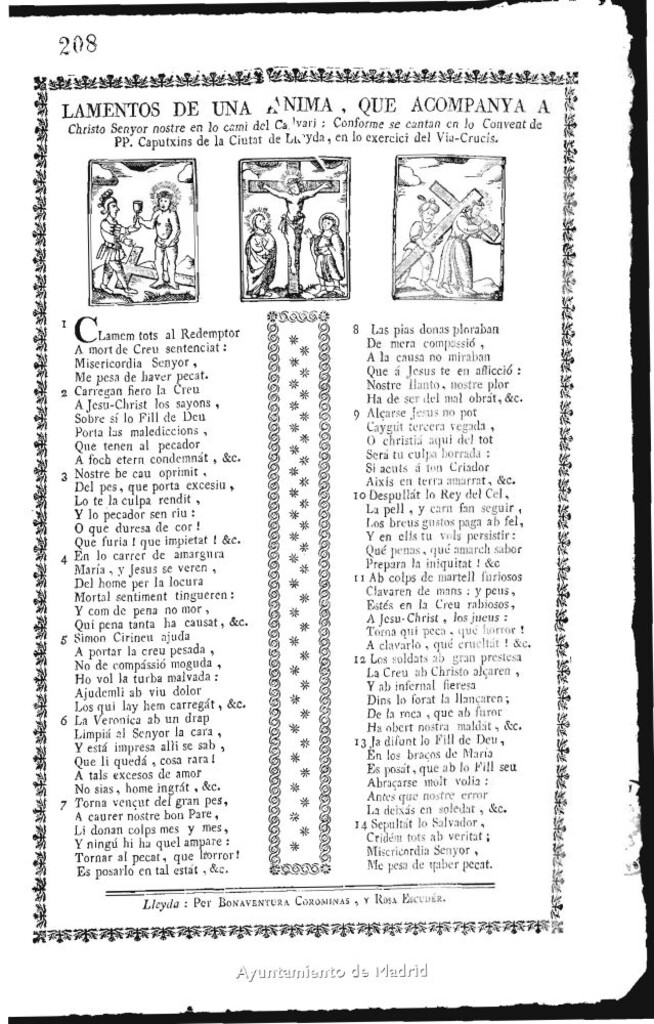 208
LAMENTOS DE UNA ANIMA, QUE ACOMPANYA A
Christo Senyor nostre en lo cami del Calvari: Conforme se cantan en lo Convent de
PP. Caputxins de la Ciutat de Lleyda, en lo exercici del Via-Crucis.
1 Clamem tots al Redemptor
A mort de Creu sentenciat:
Misericordia Senyor,
Me pesa de haver pecat.
2 Carregan fiero la Creu
A Jesu-Christ los sayons,
Sobre sí lo Fill de Deu
Porta las malediccions,
Que tenen al pecador
A foch etern condemnát, &c.
3 Nostre be cau oprimit,
Del pes, que porta excesiu,
Lo te la culpa rendit,
Y lo pecador sen riu:
O que duresa de cor!
Que furia! que impietat! &c.
4 En lo carrer de amargura
María, y Jesus se veren,
Del home per la locura
Mortal sentiment tingueren:
Y com de pena no mor,
Qui pena tanta ha causat, &c.
5 Simon Cirineu ajuda
A portar la creu pesada,
No de compássió moguda,
Ho vol la turba malvada:
Ajudemli ab viu dolor
Los qui lay hem carregát, &c.
6 La Veronica ab un drap
Limpiá al Senyor la cara,
Y está impresa alli se sab,
Que li quedá, cosa rara!
A tals excesos de amor
No sias, home ingrát, &c.
7 Torna vençut del gran pes,
A caurer nostre bon Pare,
Li donan colps mes y mes,
Y ningú hi ha quel ampare:
Tornar al pecat, que horror!
Es posarlo en tal estat, &c.
8 Las pias donas ploraban
De mera compassió,
A la causa no miraban
Que á Jesus te en aflicció:
Nostre llanto, nostre plor
Ha de ser del mal obrát, &c.
9 Alçarse Jesus no pot
Caygut tercera vegada,
O christiá aqui del tot
Será tu culpa borrada:
Si acuts á ton Criador
Aixis en terra amarrat, &c.
10 Despullát lo Rey del Cel,
La pell, y carn fan seguir,
Los breus gustos paga ab fel,
Y en ells tu vols persistir:
Qué penas, qué amarch sabor
Prepara la iniquitat! &c
11 Ab colps de martell furiosos
Clavaren de mans: y peus,
Estés en la Creu rabiosos,
A Jesu-Christ, los jueus:
Torna qui peca, qué horror!
A clavarlo, qué crueltat! &c.
12 Los soldats ab gran prestesa
La Creu ab Christo alçaren,
Y ab infernal fieresa
Dins lo forat la llançaren;
De la roca, que ab furor
Ha obert nostra maldat, &c.
13 Ja difunt lo Fill de Deu,
En los braços de Maria
Es posát, que ab lo Fill seu
Abraçarse molt volia:
Antes que nostre error
La deixás en soledat, &c.
14 Sepultát lo Salvador,
Cridém tots ab veritat;
Misericordia Senyor,
Me pesa de haber pecat.
Lleyda: Per BONAVENTURA COROMINAS, Y ROSA ESCUDÉR.
Ayuntamiento de Madrid